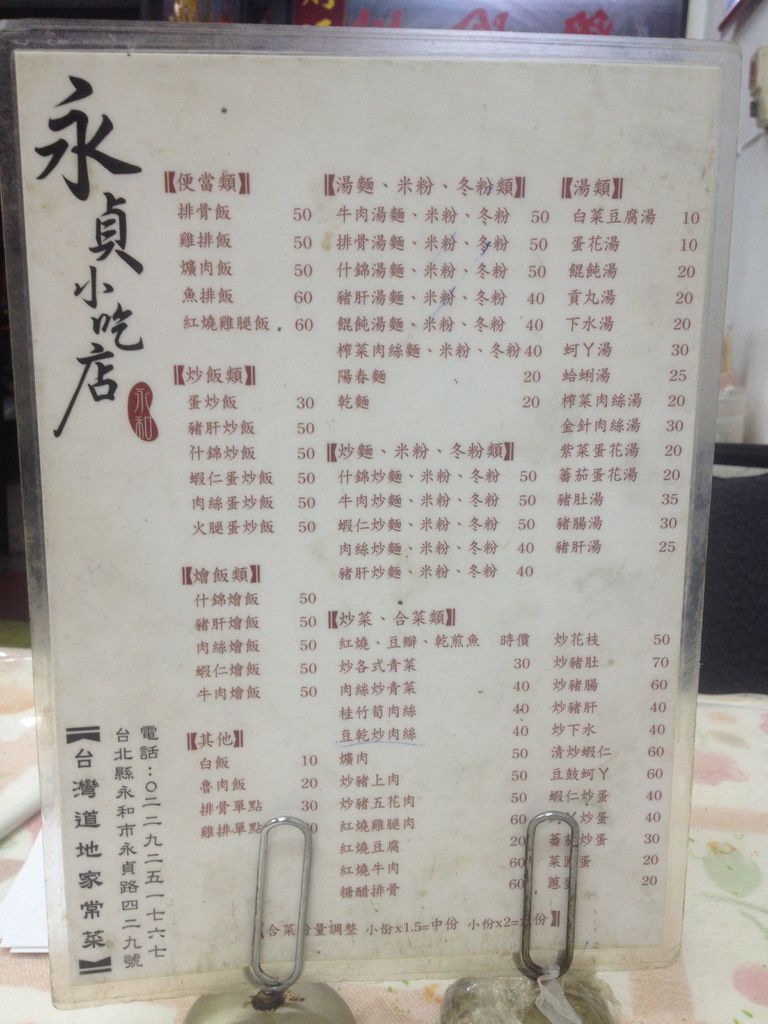 永貞小吃店
永和
【便當類】
排骨飯 50
雞排飯 50
爌肉飯 50
魚排飯 60
紅燒雞腿飯 60
【炒飯類】
蛋炒飯 30
豬肝炒飯 50
什錦炒飯 50
蝦仁蛋炒飯 50
肉絲蛋炒飯 50
火腿蛋炒飯 50
【燴飯類】
什錦燴飯 50
豬肝燴飯 50
肉絲燴飯 50
蝦仁燴飯 50
牛肉燴飯 50
【其他】
白飯 10
魯肉飯 20
排骨單點 30
雞排單點
【湯麵、米粉、冬粉類】
牛肉湯麵、米粉、冬粉 50
排骨湯麵、米粉、冬粉 50
什錦湯麵、米粉、冬粉 50
豬肝湯麵、米粉、冬粉 40
餛飩湯麵、米粉、冬粉 40
榨菜肉絲麵、米粉、冬粉 40
陽春麵 20
乾麵 20
【炒麵、米粉、冬粉類】
什錦炒麵、米粉、冬粉 50
牛肉炒麵、米粉、冬粉 50
蝦仁炒麵、米粉、冬粉 50
肉絲炒麵、米粉、冬粉 40
豬肝炒麵、米粉、冬粉 40
【湯類】
白菜豆腐湯 10
蛋花湯 10
餛飩湯 20
貢丸湯 20
下水湯 20
蚵丫湯 30
蛤蜊湯 25
榨菜肉絲湯 20
金針肉絲湯 30
紫菜蛋花湯 20
蕃茄蛋花湯 20
豬肚湯 35
豬腸湯 30
豬肝湯 25
【炒菜、合菜類】
紅燒、豆瓣、乾煎魚 時價
炒各式青菜 30
肉絲炒青菜 40
桂竹筍肉絲 40
豆乾炒肉絲 40
爌肉 50
炒豬上肉 50
炒豬五花肉 50
紅燒雞腿肉 60
紅燒豆腐 20
紅燒牛肉 60
糖醋排骨 60
炒花枝 50
炒豬肚 70
炒豬腸 60
炒豬肝 40
炒下水 40
清炒蝦仁 60
豆鼓蚵丫 60
蝦仁炒蛋 40
丫炒蛋 40
蕃茄炒蛋 30
菜蛋 20
蔥 20
【合菜份量調整 小份x1.5=中份 小份x2=份】
電話:０二２９２５１７６７
台北縣永和市永貞路四二九號
【台灣道地家常菜】